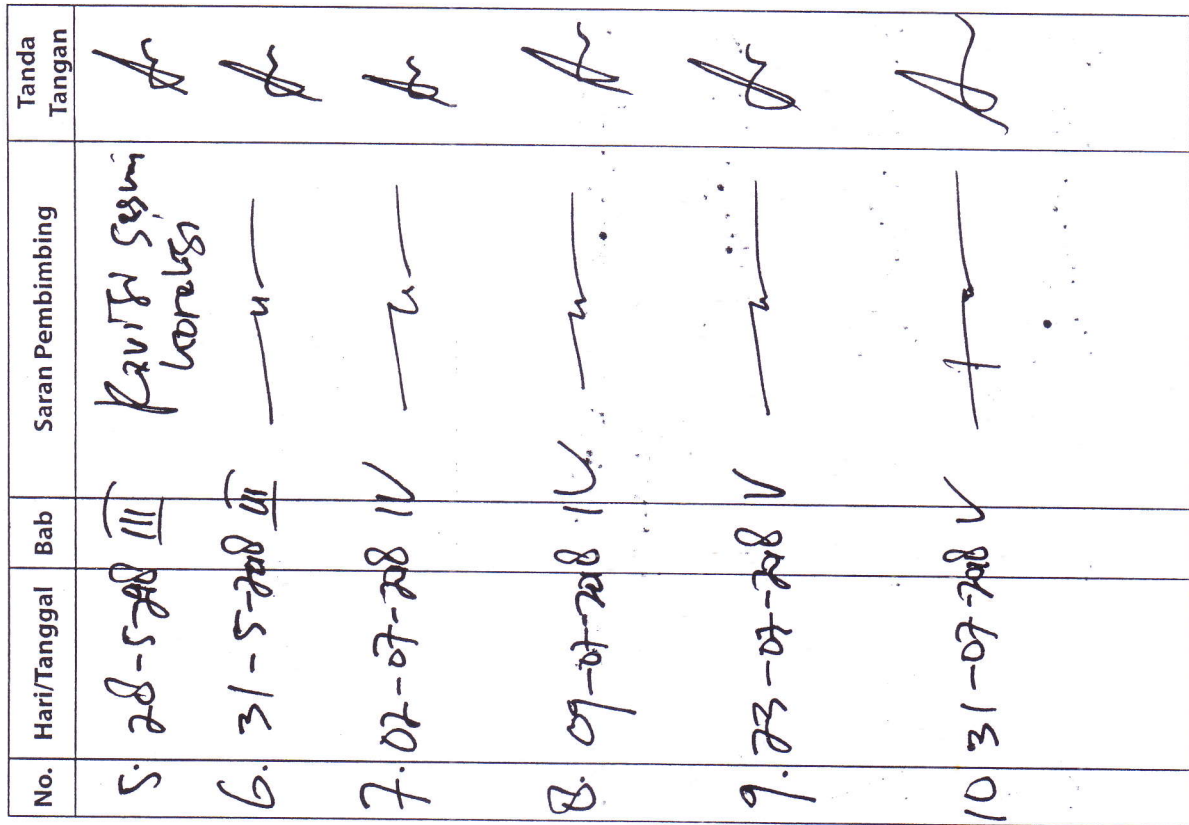 No. Hari/Tanggal Bab Saran Pembimbing Tanda Tangan
5. 28-5-2018 III Revisi sesuai
koreksi
6. 31-5-2018 III —〃—
7. 02-07-2018 IV —〃—
8. 09-07-2018 IV —〃—
9. 23-07-2018 V —〃—
10 31-07-2018 V —〃—